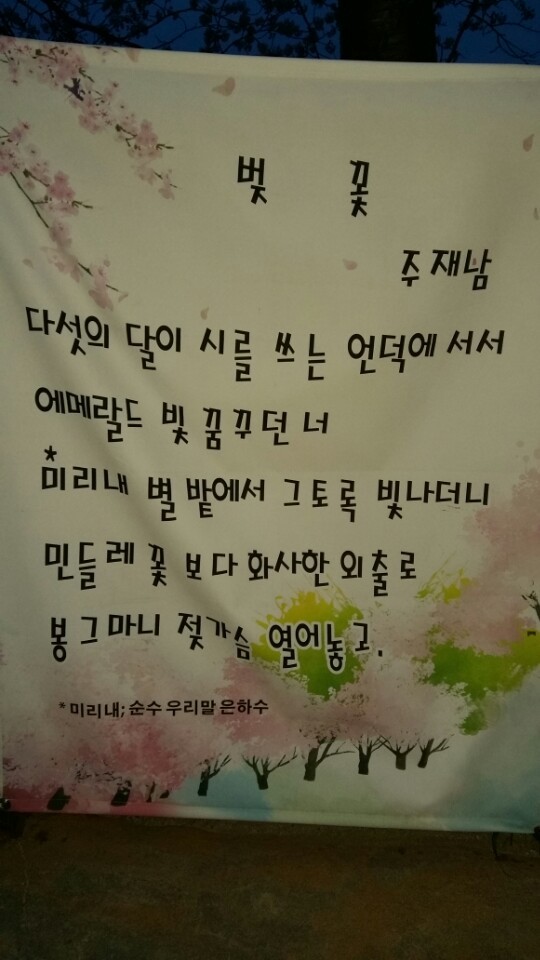 벚 꽃
주재남
다섯의 달이 시를 쓰는 언덕에 서서
에메랄드 빛 꿈꾸던 너
*미리내 별 밭에서 그토록 빛나더니
민들레 꽃 보다 화사한 외출로
봉그마니 젖가슴 열어놓고.
*미리내; 순수 우리말 은하수